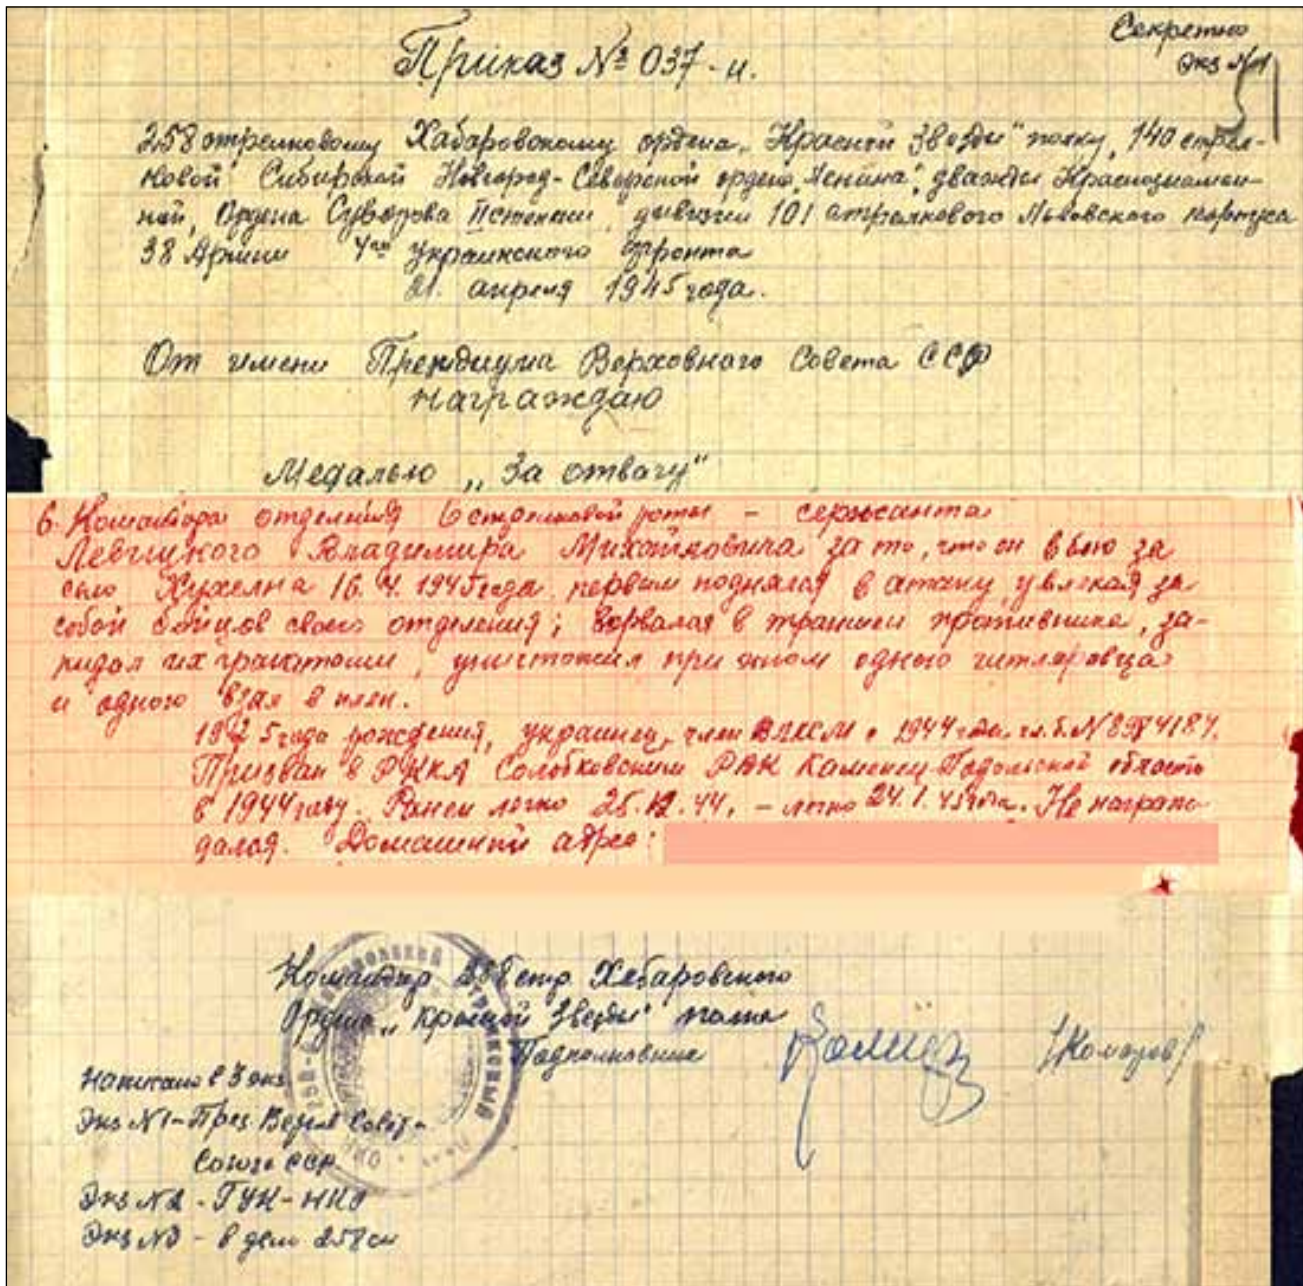 Секретно
Экз №1
Приказ № 037-н.
258 стрелковому Хабаровскому ордена „Красной Звезды" полку, 140 стрел-
ковой Сибирской Новгород-Северской ордена „Ленина", дважды Краснознамен-
ной, Ордена Суворова II степени дивизии 101 стрелкового Львовского корпуса
38 Армии 4го Украинского фронта
21. апреля 1945 года.
От имени Президиума Верховного Совета ССР
награждаю
Медалью „За отвагу"
6. Командира отделения 6 стрелковой роты - сержанта
Левицкого Владимира Михайловича за то, что он в бою за
село 16.4.1945 года первым поднялся в атаку, увлекая за
собой бойцов своего отделения; ворвался в траншеи противника, за-
кидал их гранатами, уничтожил при этом одного гитлеровца
и одного взял в плен.
1925 года рождения, украинец, член ВЛКСМ с 1944 года
Призван в РККА Солобковским РВК Каменец-Подольской области
в 1944 году. Ранен легко 44, - легко 24.1.45 года. Не награж-
дался. Домашний адрес:
Командир 258 стр. Хабаровского
Ордена „Красной Звезды" полка
Подполковник
/Комаров/
Написано в 3 экз
Экз №1-През. Верхов Совета
Союза ССР
Экз №2 - ГУК-НКО
Экз №3 - в дело 258 сп